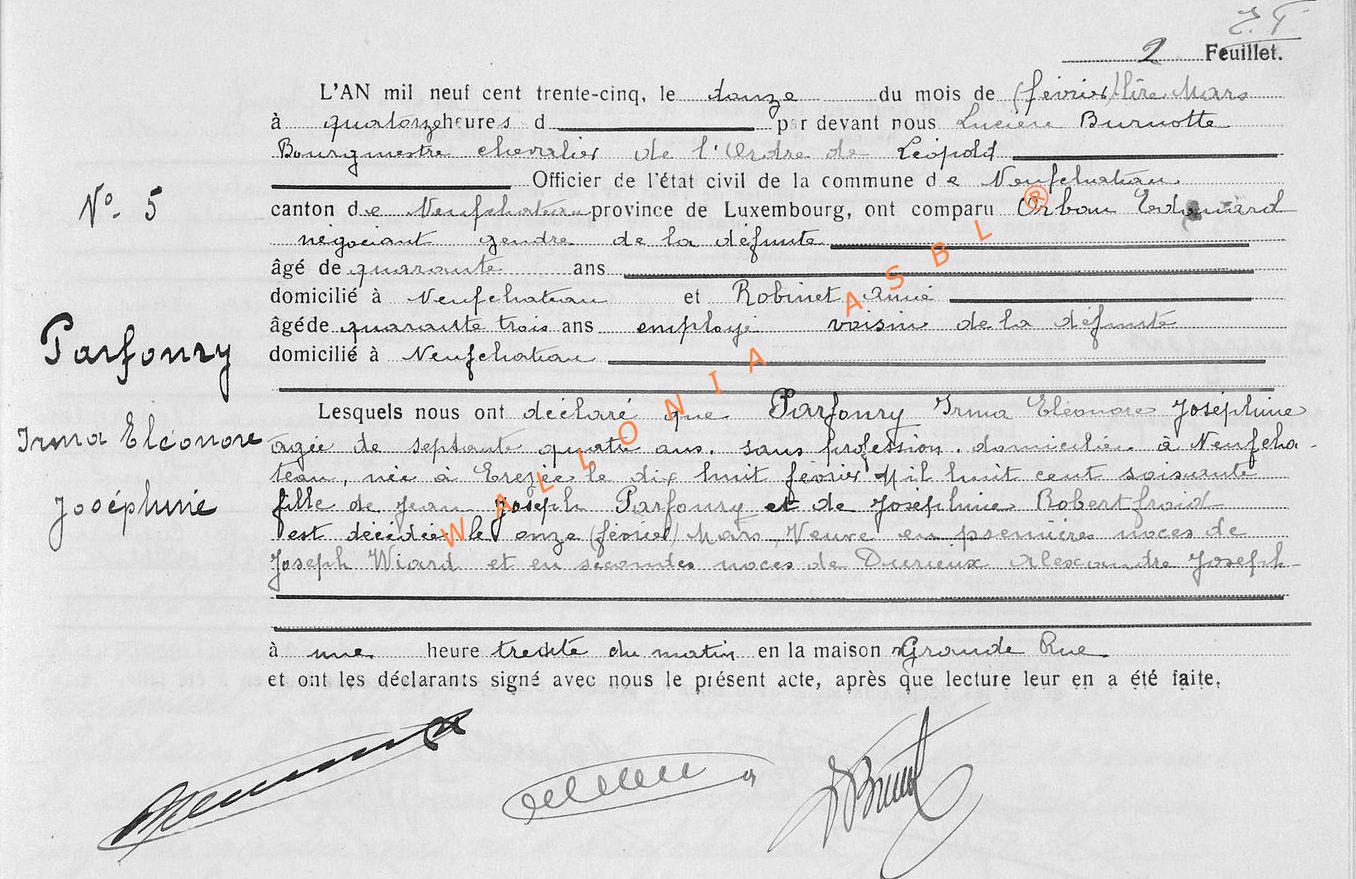 2 Feuillet.
L'AN mil neuf cent trente-cinq, le douze du mois de (février) lire Mars
à quatorze heures d par devant nous Lucien Burnotte
Bourgmestre chevalier de l'Ordre de Léopold
Officier de l'état civil de la commune de Neufchateau
N° 5
canton de Neufchateau province de Luxembourg, ont comparu Orban Edouard
négociant gendre de la défunte
âgé de quarante ans
domicilié à Neufchateau et Robinet Aimé
âgé de quarante trois ans employé voisin de la défunte
domicilié à Neufchateau
Parfonry
Irma Eléonore
Joséphine
Lesquels nous ont déclaré que Parfonry Irma Eléonore Joséphine
agée de septante quatre ans. sans profession. domiciliée à Neufcha-
teau, née à Erezée le dix huit février Mil huit cent soixante
fille de Jean Joseph Parfonry et de Joséphine Robertfroid
est décédée le onze (février) Mars, Veuve en premières noces de
Joseph Wiard et en secondes noces de Durieux Alexandre Joseph
à une heure trente du matin en la maison Grande Rue
et ont les déclarants signé avec nous le présent acte, après que lecture leur en a été faite.
WALLONIA ASBL ®